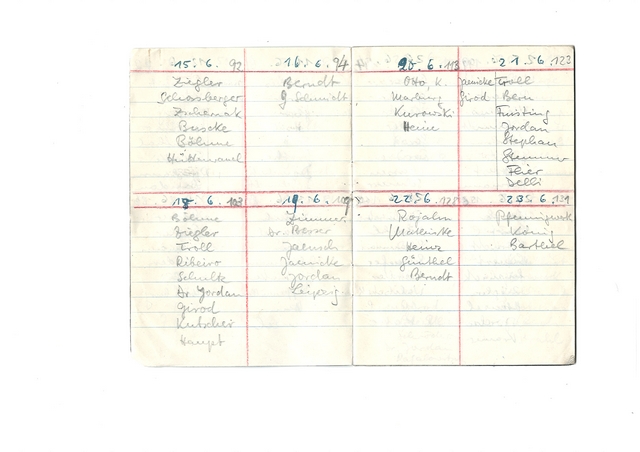 15. 6. 92
Ziegler
Schossberger
Zscharnak
Buscke
Böhme
16. 6. 94
Berndt
J Schmidt
18. 6. 103
Böhme
Ziegler
Troll
Ribeiro
Schulte
Dr. Jordan
Girod
Kutscher
Haupt
19. 6. 109
Zimmer
Dr. Besser
Jaensch
Jaenicke
Jordan
Leipzig
20. 6. 113
Otto, K.
Marburg
Kurowski
Heine
21. 6. 123
Jaenicke Troll
Girod Bern
Jordan
Stephan
Flier
Delli
22. 6. 128
Rojahn
Heinz
Günthel
Berndt
23. 6. 131
Pfennigwerk
König
Barthel